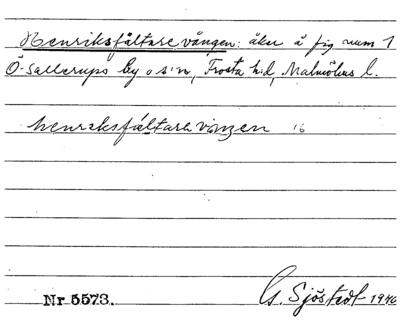 Henriksfältare vången: åker å fig num 1
Ö-Sallerups by o s:n, Frosta hd, Malmöhus l.
henrıksfáltara viŋ̣en 16
Nr 5573.
G. Sjöstedt 1946